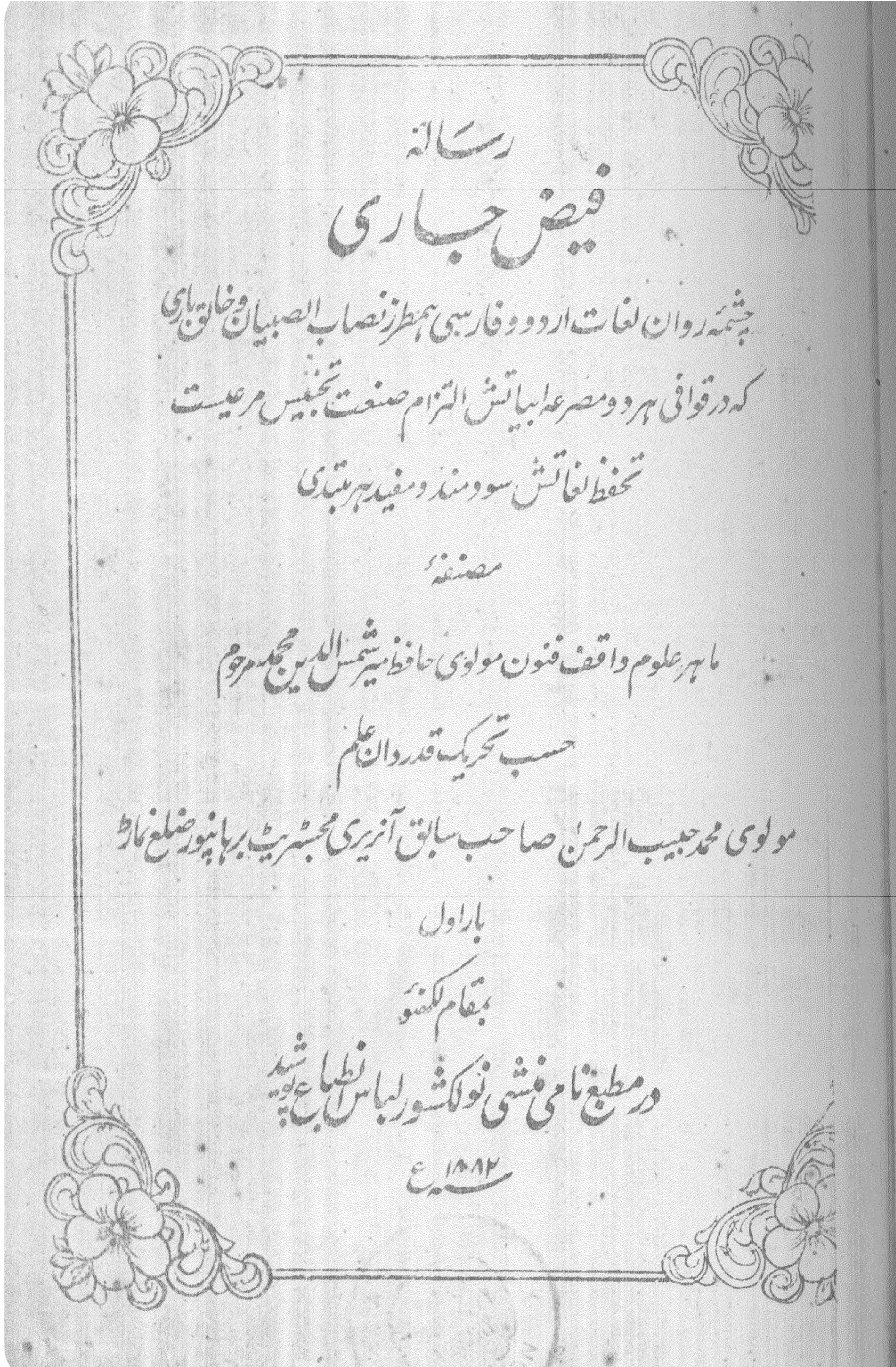 رسالہ
فیض جاری
چشمۂ روان لغات اردو و فارسی ہمطرز نصاب الصبیان و خالق باری
کہ در قوافی ہر دو مصرعہ ابیاتش التزام صنعت تجنیس مرعیست
تحفظ لغاتش سودمند و مفید ہر مبتدی
مصنفۂ
ماہر علوم واقف فنون مولوی حافظ میر شمس الدین محمد مرحوم
حسب تحریک قدردان علم
مولوی محمد حبیب الرحمٰن صاحب سابق آنریری مجسٹریٹ برہانپور ضلع نماڑ
بار اول
بمقام لکھنؤ
در مطبع نامی منشی نولکشور لباس انطباع پوشید
سنہ ۱۸۸۲ ع